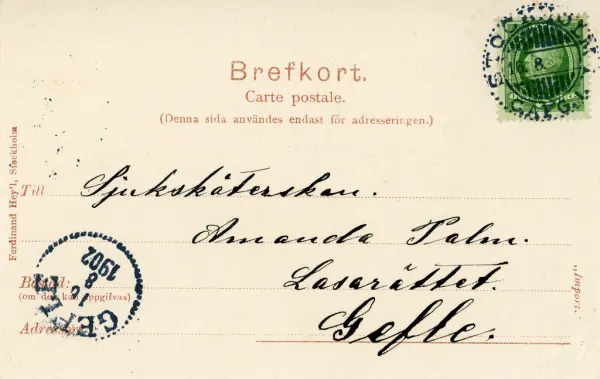 Brefkort.
Carte postale.
(Denna sida användes endast för adresseringen.)
Till Sjuksköterskan.
Amanda Palm.
Bostad: Lasarättet.
(om den kan uppgifvas)
Gefle.
Adressort:
Ferdinand Hey'l, Stockholm
"Import."
STOCKHOLM
8
GEFLE
8
1902